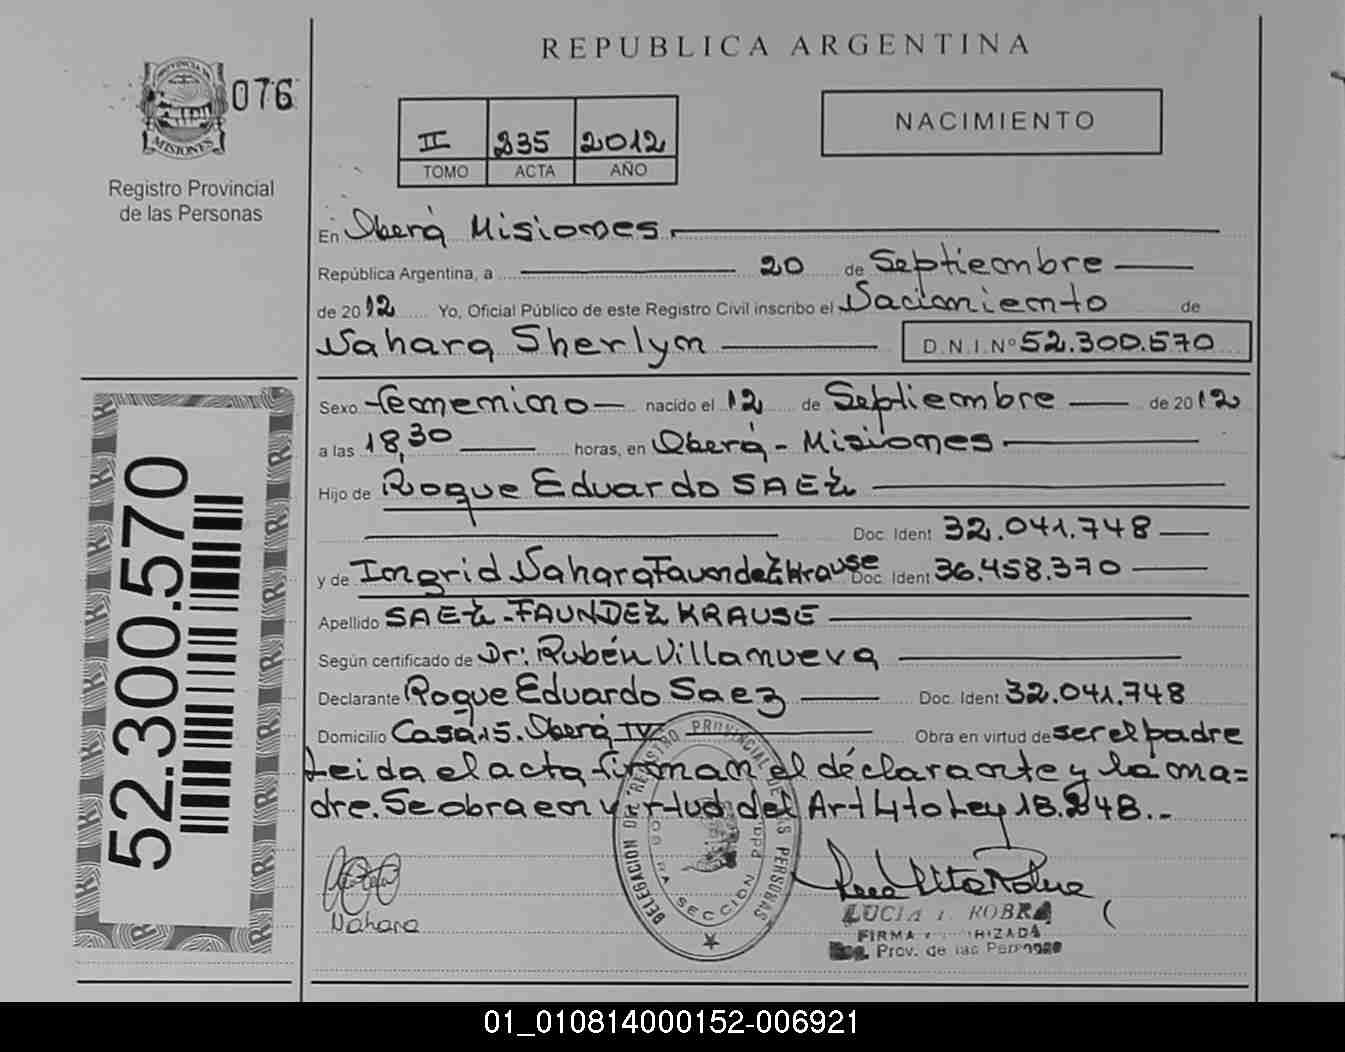 REPUBLICA ARGENTINA
PROVINCIA DE
MISIONES
076
Registro Provincial
de las Personas
II 235 2012
TOMO ACTA AÑO
NACIMIENTO
En Oberá Misiones.
República Argentina, a 20 de Septiembre
de 2012 Yo, Oficial Público de este Registro Civil inscribo el Nacimiento de
Nahara Sherlyn D.N.I.Nº 52.300.570
Sexo femenino nacido el 12 de Septiembre de 2012
a las 18,30 horas, en Oberá - Misiones
Hijo de Roque Eduardo SAEZ
Doc. Ident 32.041.748
y de Ingrid Nahara Faundez Krause Doc. Ident 36.458.370
Apellido SAEZ - FAUNDEZ KRAUSE
Según certificado de Dr: Rubén Villanueva
Declarante Roque Eduardo Saez Doc. Ident 32.041.748
Domicilio Casa 15. Oberá IV Obra en virtud de ser el padre
Leida el acta firman el declarante y la ma=
dre. Se obra en virtud del Art 4to Ley 18.248.-
52.300.570
Nahara
DELEGACION DEL REGISTRO PROVINCIAL DE LAS PERSONAS
SECCION
LUCIA ROBRA
FIRMA
Prov. de las Personas
01_010814000152-006921